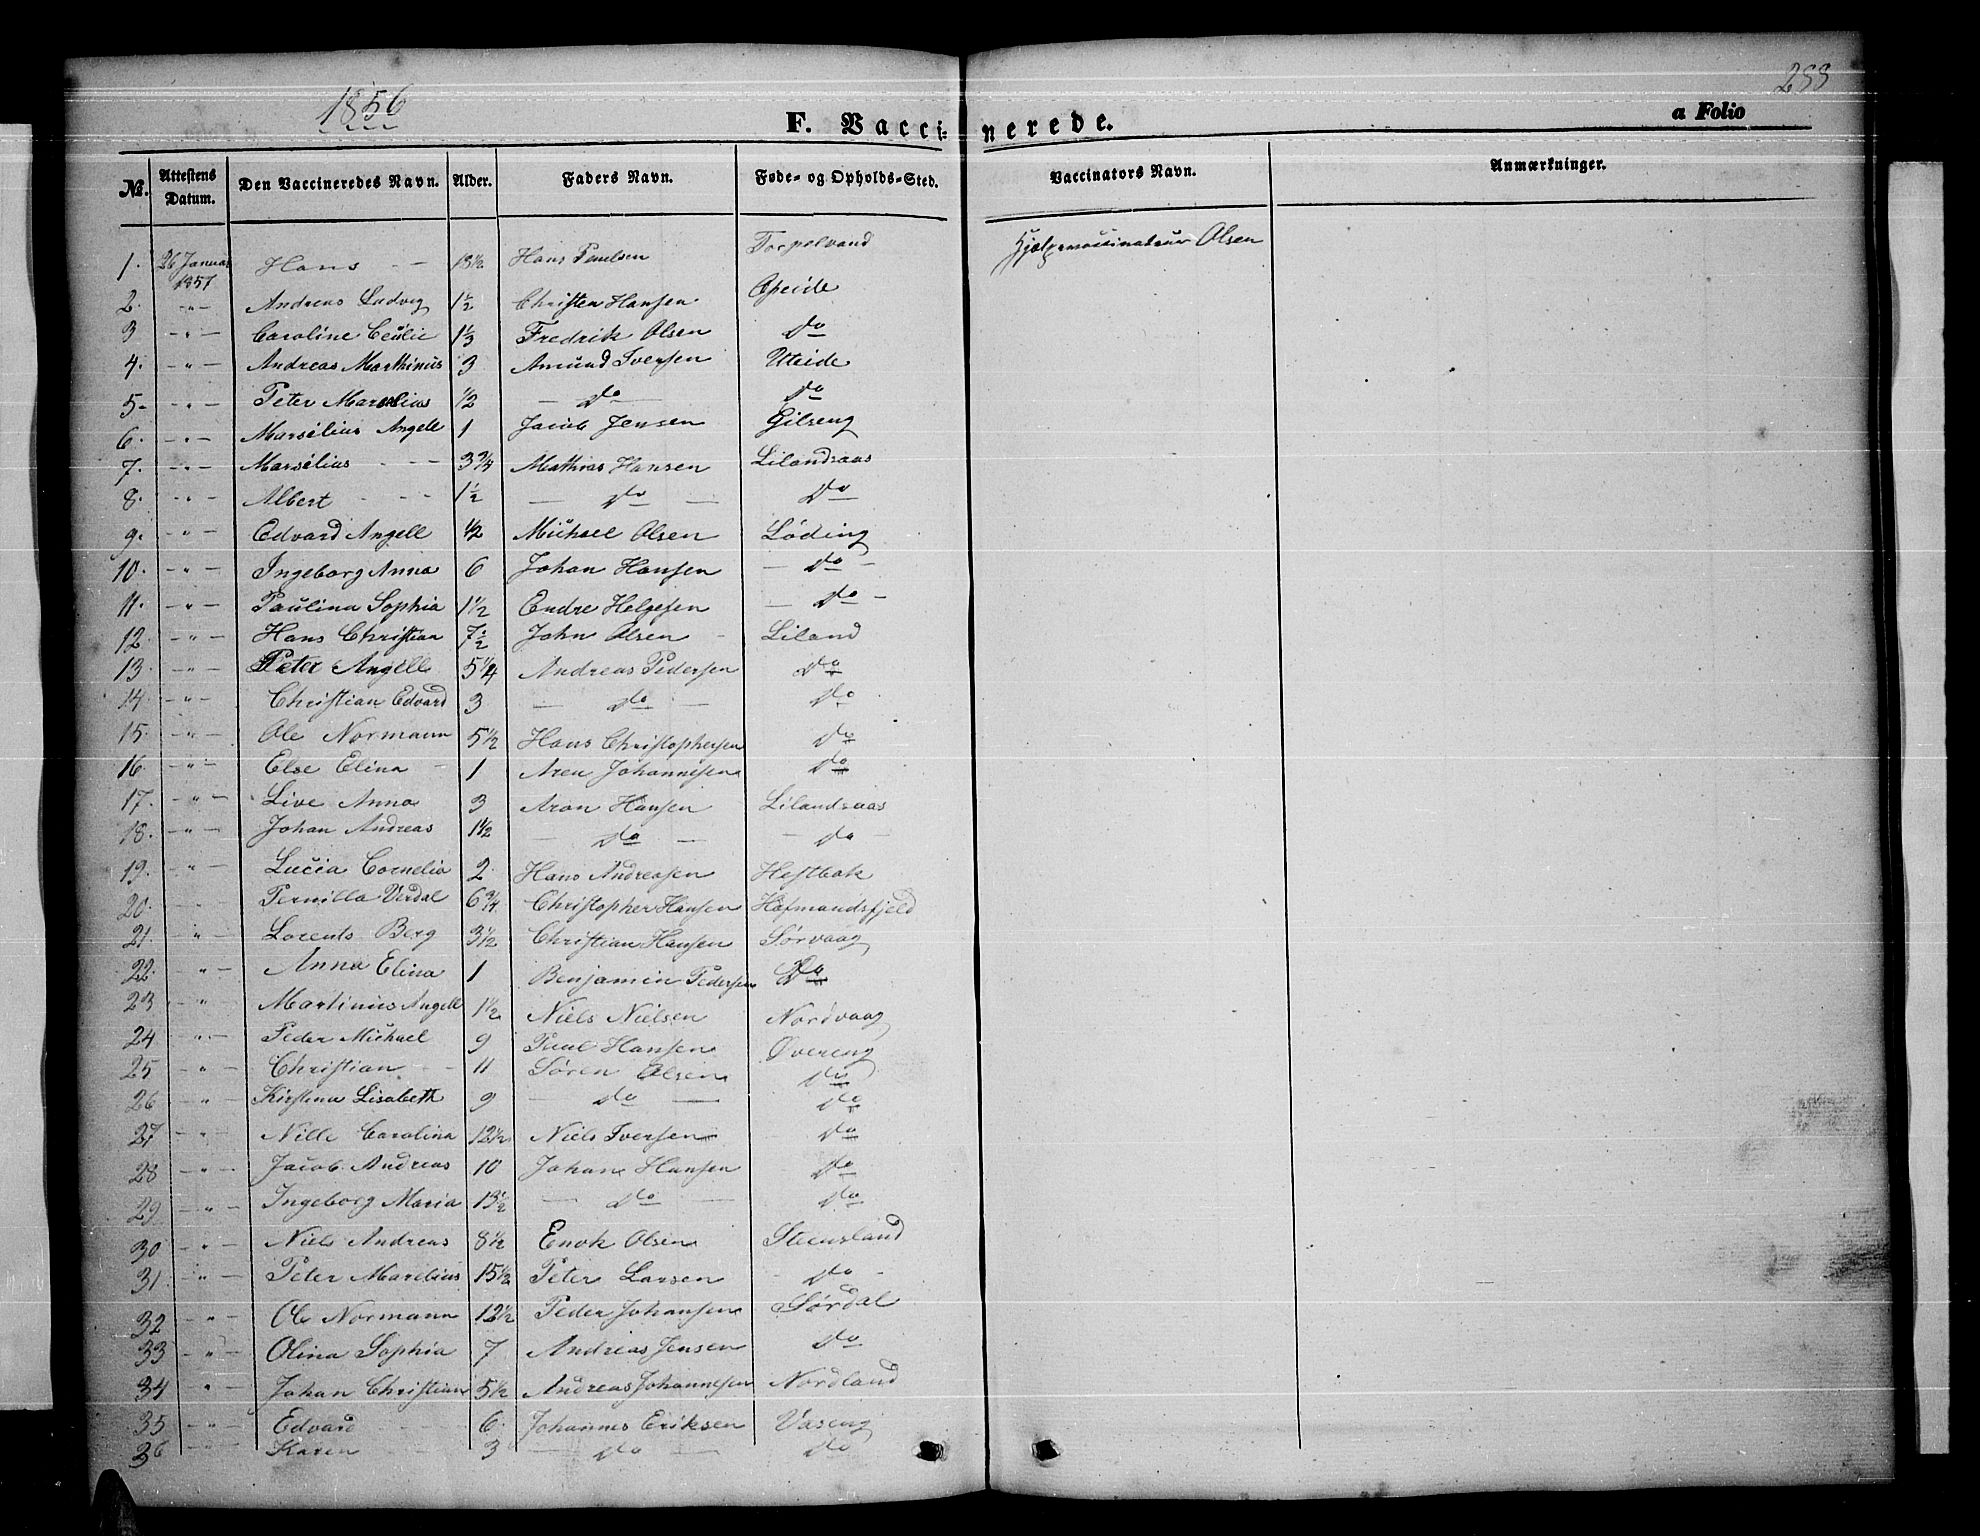 1856
288
F. Vaccinerede.
a Folio
No. Attestens Datum. Den Vaccineredes Navn. Alder. Faders Navn. Føde- og Opholds-Sted. Vaccinators Navn. Anmærkninger.
1. 26 Januar 1857 Hans - - 13½ Hans Paulsen Torpelvand Hjælpevaccinateur Olsen
2. -"- Andreas Ludvig 1½ Christen Hansen Opeide
3 -"- Caroline Cecilie 1⅓ Fredrik Olsen Do
4. -"- Andreas Marthinus 3 Amund Iversen Uteide
5- -"- Peter Marselius ½ - Do - Do
6. -"- Marselius Angell 1 Jacob Jensen Gilseng
7. -"- Marselius - - - 3¾ Mathias Hansen Lilandsaas
8. -"- Albert - - - 1½ - Do - Do
9. -"- Edvard Angell ½ Michael Olsen Løding
10. -"- Ingeborg Anna 6 Johan Hansen - Do -
11. -"- Paulina Sophia 1½ Endre Helgesen - Do -
12. -"- Hans Christian 7½ John Olsen - Liland
13. -"- Peter Angell 5¼ Andreas Pedersen Do
14. -"- Christian Edvard 3 - Do - Do
15. -"- Ole Normann 5½ Hans Christophersen Do
16. -"- Else Elina - 1 Aren Johannesen Do
17. -"- Live Anna 3 Aron Hansen Lilandsaas
18. -"- Johan Andreas 1½ - Do - - Do -
19. -"- Lucia Cornelia 2 Hans Andreasen Hestbak
20. " Pernilla Verdal 6¾ Christopher Hansen Hafmandsfjeld
21. -"- Lorents Berg 3½ Christian Hansen Sørvaag
22. -"- Anna Elina 1 Benjamin Pedersen Do
23 -"- Martinus Angell 1½ Niels Nielsen Nordvaag
24 -"- Peder Michael 9 Paul Hansen Øvereng
25 -"- Christian - - 11 Søren Olsen Do
26 -"- Kirstina Lisabeth 9 - Do - Do
27 -"- Nille Carolina 12½ Niels Iversen Do
28 -"- Jacob Andreas 10 Johan Hansen Do
29 -"- Ingeborg Maria 13½ - Do - Do
30 -"- Niels Andreas 8½ Enok Olsen Steensland
31. -"- Peter Marelius 15½ Peter Larsen - Do -
32 -"- Ole Normann 12½ Peder Johansen Sørdal
33 -"- Olina Sophia 7 Andreas Jensen Do
34 -"- Johan Christian 5½ Andreas Johannesen Nordland
35 -"- Edvard - - 6. Johannes Eriksen Vaseng
36 -"- Karen - - 3 - Do - Do